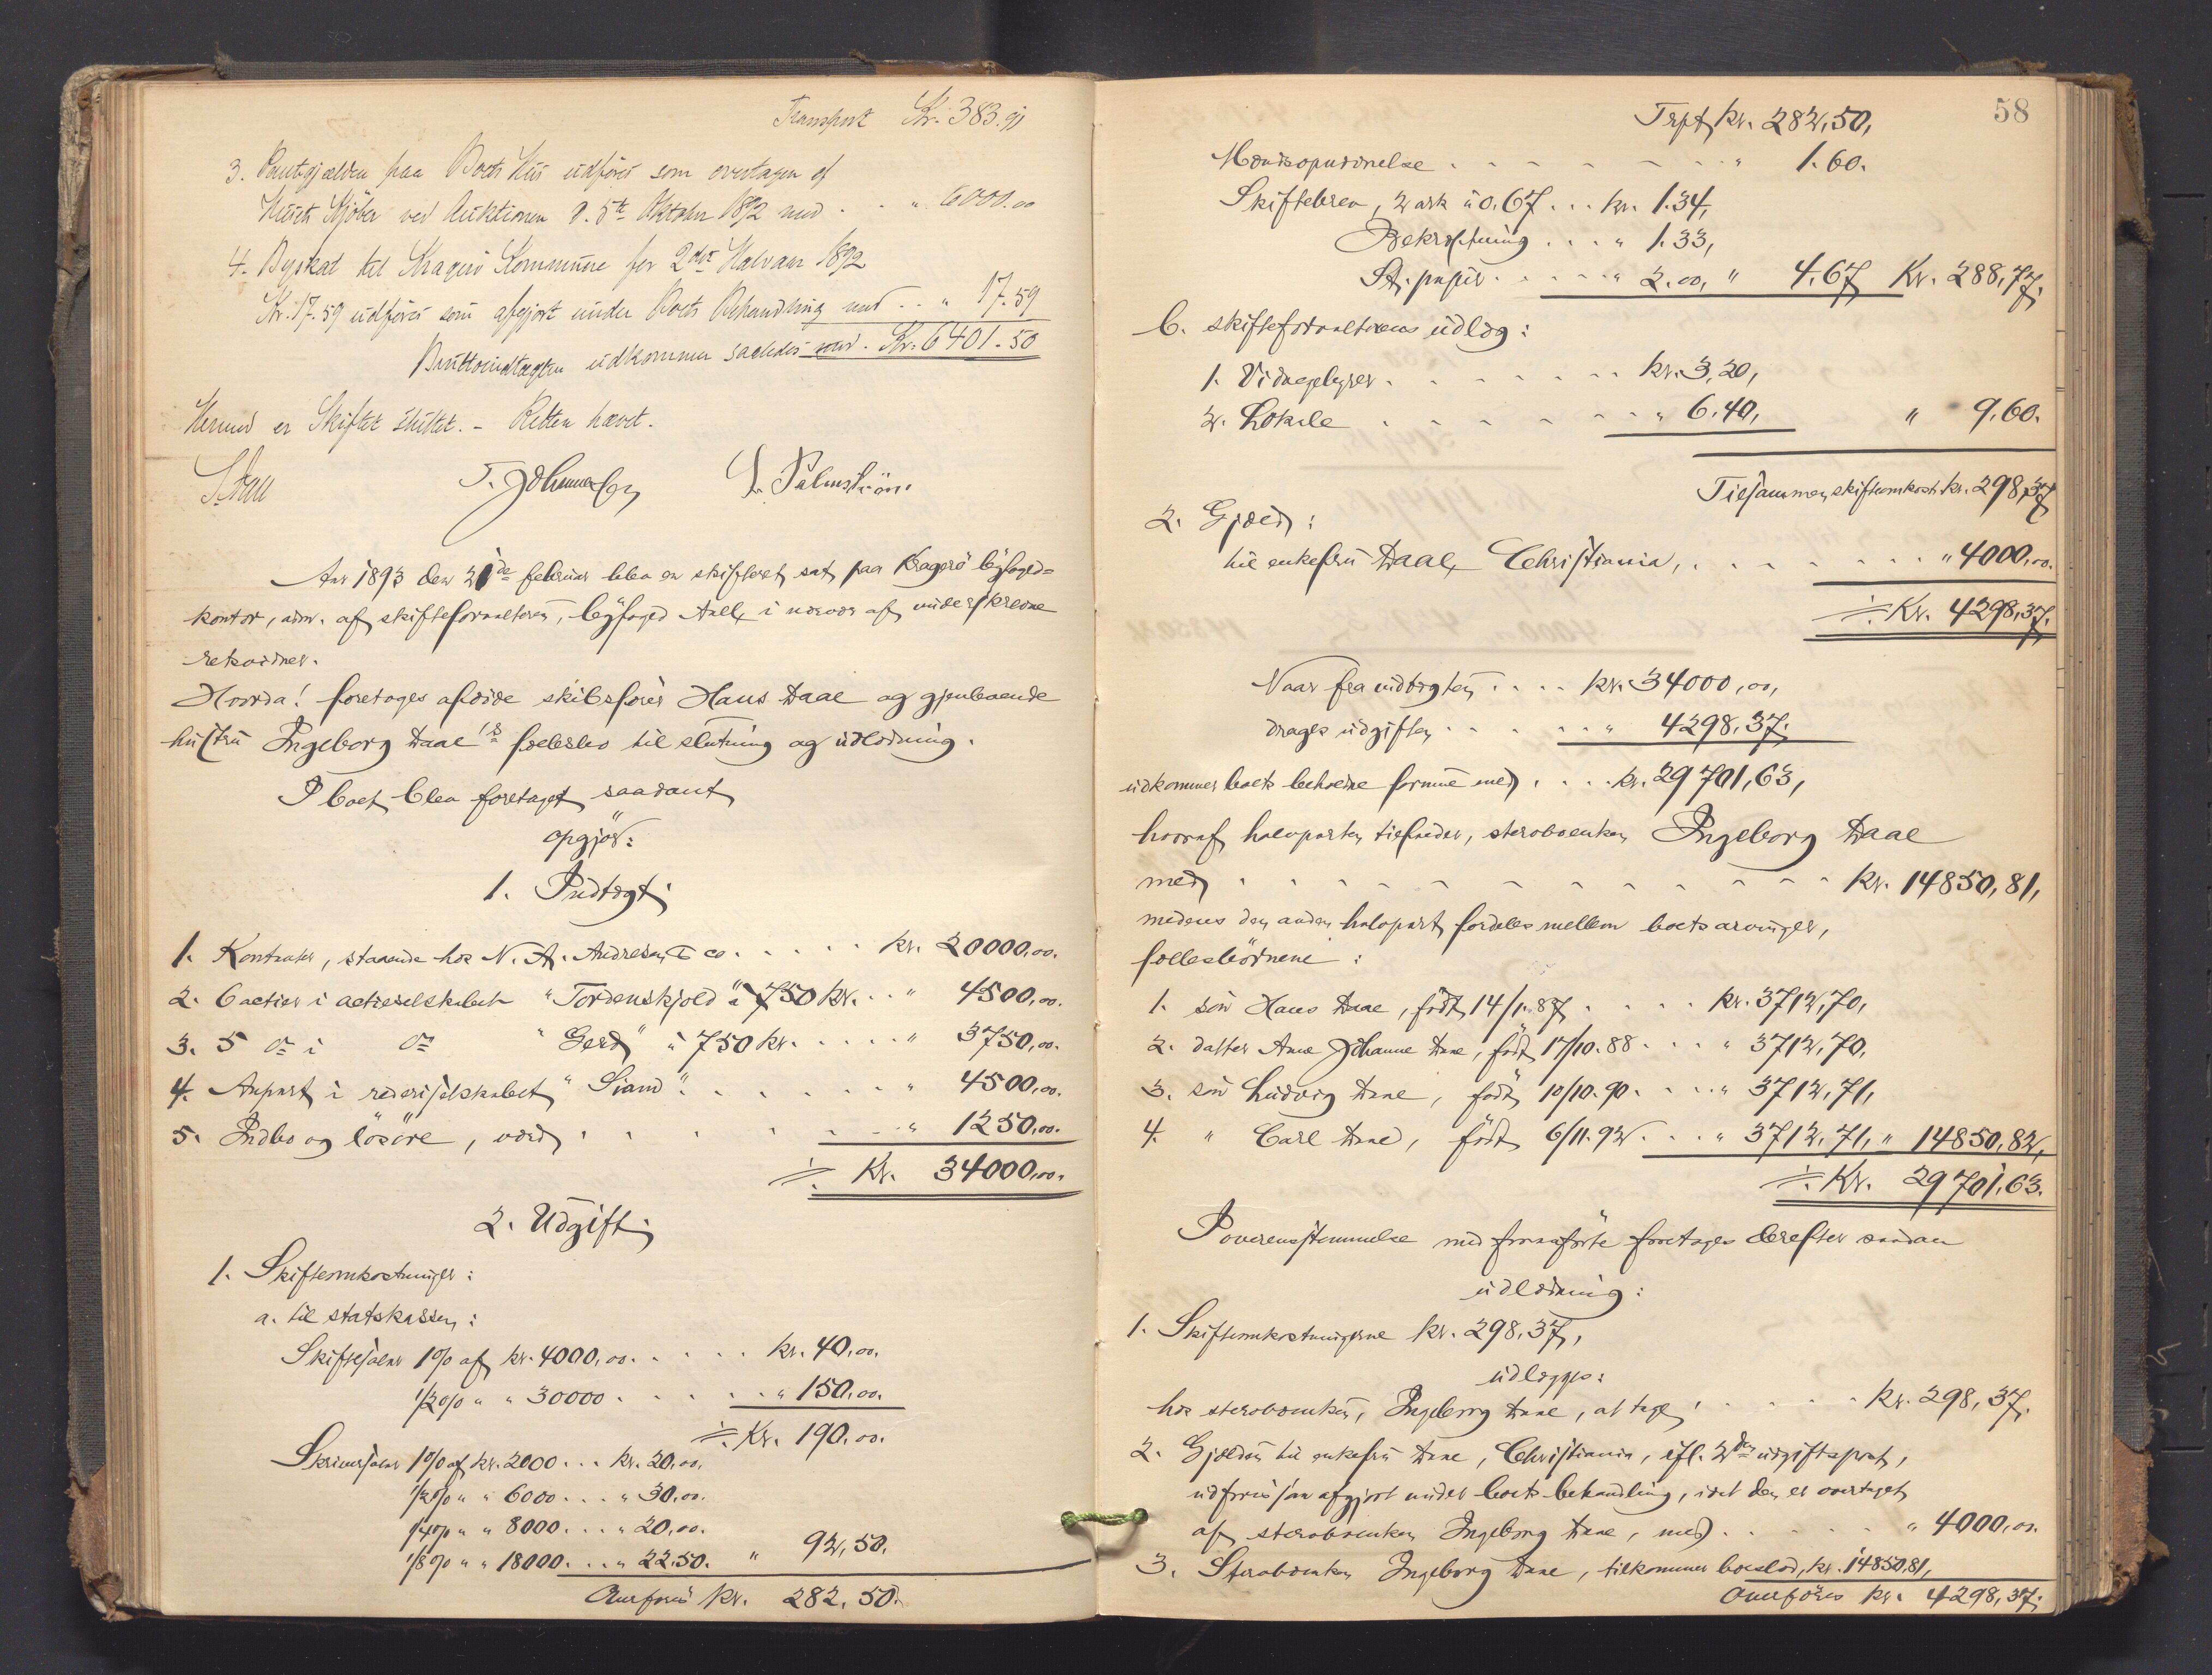 Transport Kr. 383.91
3. Pantegjælden paa Boets Hus udføres som overtagen af
Husets Kjöber ved Auktionen d. 5te Oktober 1892 med . . " 6000.00
4. Byskat til Kragerö Kommune for 2det Halvaar 1892
Kr. 17.59 udføres som afgjort under Boets Behandling med . . " 17.59
Bruttoindtægten udkommer saaledes med . Kr. 6401.50
Hermed er Skiftet sluttet. - Retten hævet.
Aall T. Johannesen L. Palmström.
Aar 1893 den 21de februar blev en skifteret sat paa Kragerö byfoged-
kontor, adm. af skifteforvalteren, byfoged Aall, i nærvær af underskrevne
retsvidner.
Hvorda! foretoges afdøde skibsfører Hans Daae og gjenlevende
hustru Ingeborg Daae's fællesbo til slutning og udlodning.
I boet blev foretaget saadant
opgjør:
1. Indtægt.
1. Kontanter, staaende hos N. A. Andresen & co. . . . . kr. 20000,00.
2. 6 actier i actieselskabet "Tordenskjold" à 750 kr. . . " 4500,00.
3. 5 do i do "Gerd" à 750 kr. . . . . . " 3750,00.
4. Anpart i rederiselskabet "Siam" . . . . . . " 4500,00.
5. Indbo og lösöre, værd . . . . . . . . " 1250,00.
÷ Kr. 34000,00.
2. Udgift.
1. Skifteomkostninger:
a. til statskassen:
Skiftesalær 1% af kr. 4000,00. . . . . kr. 40,00.
1/2% " " 30000 . . . . . " 150,00.
÷ Kr. 190,00.
Skriversalær 1% af kr. 2000 . . . kr. 20,00.
1/2% " " 6000 . . . " 30,00.
1/4% " " 8000 . . . " 20,00.
1/8% " " 18000 . . . " 22.50. " 92,50.
Overføres kr. 282,50.
58
Trpt kr. 282,50,
. . . . . . . " 1.60.
Skiftebrev, 2 ark à 0.67 . . . kr. 1.34,
Bekræftning . . . " 1.33,
St. papir . . . . . " 2.00, " 4.67 Kr. 288,77.
b. skifteforvalterens udlæg:
1. Vidnegebyrer . . . . . . . kr. 3,20,
2. Lokale . . . . . . . " 6.40, " 9,60.
Tilsammen skifteomkost. kr. 298,37
2. Gjæld:
til enkefru Daae, Christiania, . . . . . . . " 4000,00.
÷ Kr. 4298,37.
Naar fra indtægten . . . . kr. 34000,00,
drages udgiften . . . . . . " 4298.37.
udkommer boets beholdne formue med . . . . kr. 29701,63,
hvoraf halvparten tilfalder, sterboenken Ingeborg Daae
med . . . . . . . . . . . . kr. 14850,81,
medens den anden halvpart fordeles mellem boets arvinger,
fællesbörnene:
1. sön Hans Daae, født 14/1. 87 . . . . . kr. 3712,70,
2. datter Anne Johanne Daae, født 17/10. 88 . . . " 3712,70,
3. sön Ludvig Daae, født 10/10. 90. . . . " 3712,71,
4. " Carl Daae, født 6/11. 92 . . . " 3712,71, " 14850,82,
÷ Kr. 29701,63.
I overensstemmelse med foranførte foretoges derefter saadan
udlodning:
1. Skifteomkostningerne kr. 298.37,
udlægges:
hos sterboenken, Ingeborg Daae, at tage . . . . . kr. 298,37.
2. Gjælden til enkefru Daae, Christiania, ifl. 2den udgiftspost,
udføres som afgjort under boets behandling, idet den er overtaget
af sterboenken Ingeborg Daae, med . . . . . " 4000,00.
3. Sterboenken Ingeborg Daae, tilkommer boeslod, kr. 14850,81,
Overføres kr. 4298,37.